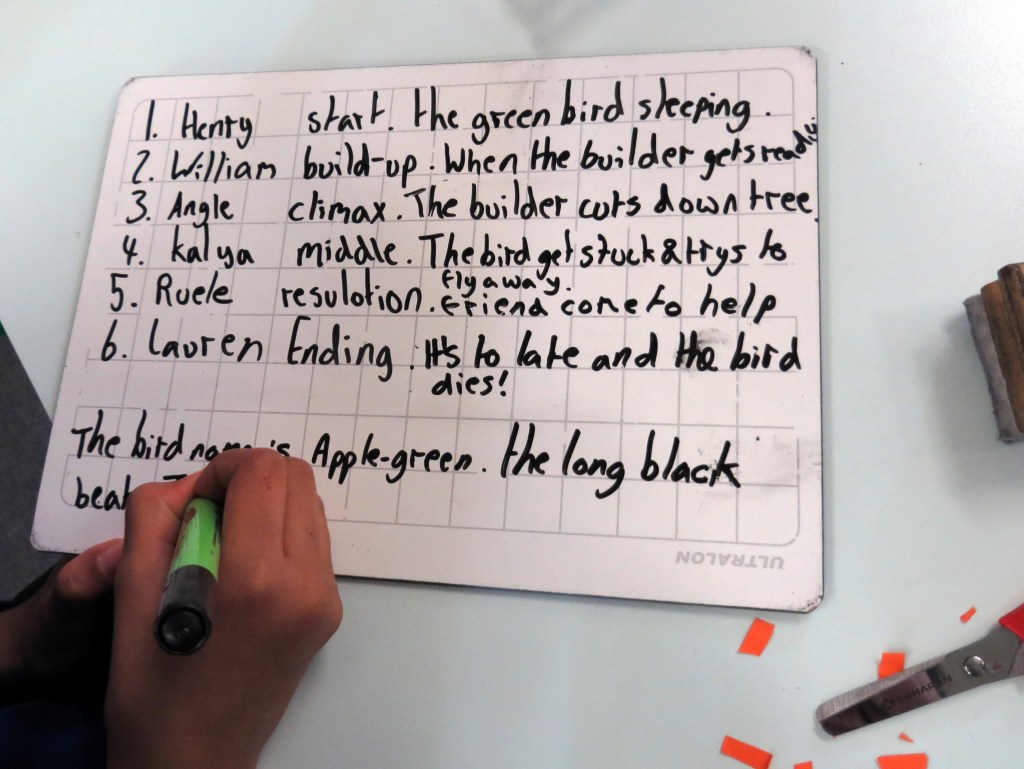 1. Henry start. the green bird sleeping.
2. William build-up. When the builder gets ready.
3. Angle climax. The builder cuts down tree.
4. kalya middle. The bird get stuck & trys to
fly away.
5. Ruele resulotion. friend come to help
6. Lauren Ending. It's to late and the bird
dies!
The bird name is Apple-green. the long black
ULTRALON